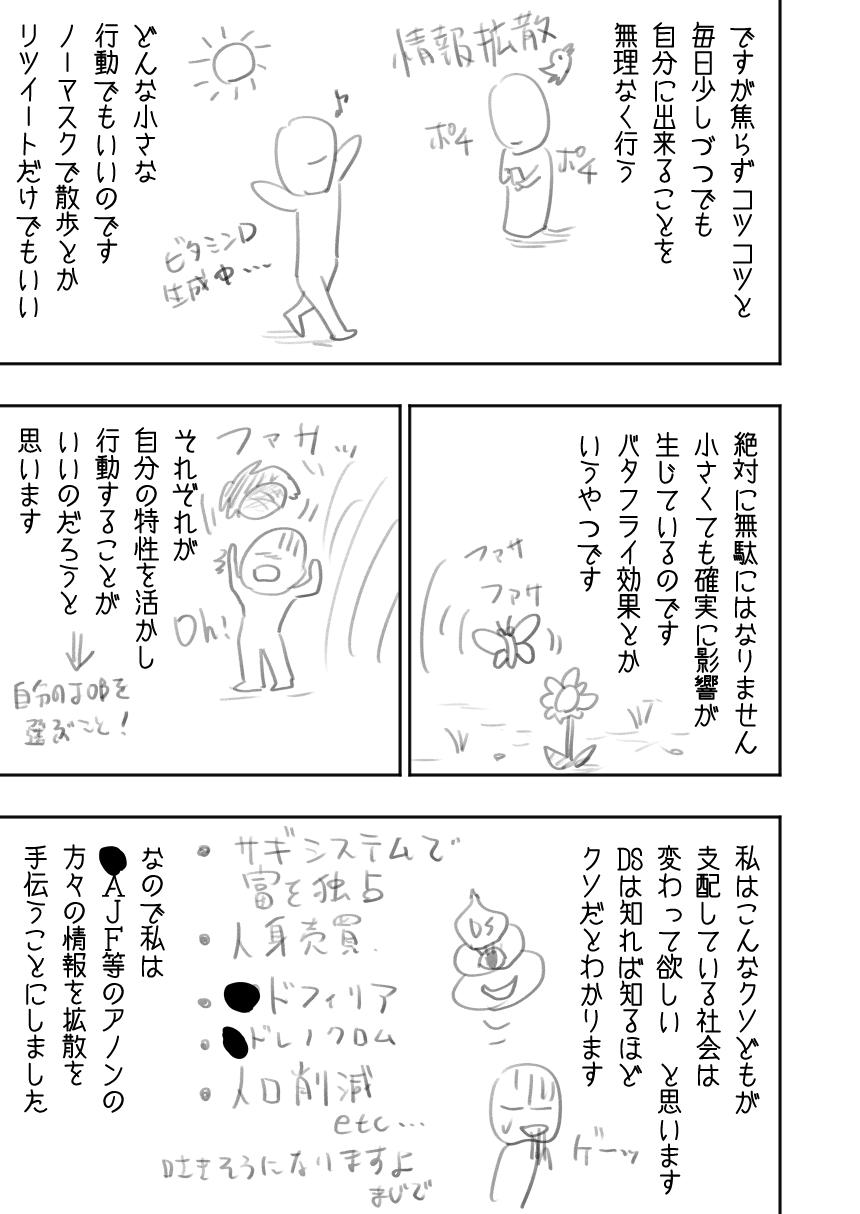 ですが焦らずコツコツと
毎日少しづつでも
自分に出来ることを
無理なく行う
情報拡散
ポチ
ポチ
どんな小さな
行動でもいいのです
ノーマスクで散歩とか
リツイートだけでもいい
♪
ビタミンD
生成中…
絶対に無駄にはなりません
小さくても確実に影響が
生じているのです
バタフライ効果とか
いうやつです
ファサ
ファサ
ファサッ
Oh!
それぞれが
自分の特性を活かし
行動することが
いいのだろうと
思います
自分のJOBを
選ぶこと!
私はこんなクソどもが
支配している社会は
変わって欲しい と思います
DSは知れば知るほど
クソだとわかります
DS
ゲーッ
・サギシステムで
富を独占
・人身売買
・●ドフィリア
・●ドレノクロム
・人口削減
etc…
吐きそうになりますよ
まじで
なので私は
●AJF等のアノンの
方々の情報を拡散を
手伝うことにしました